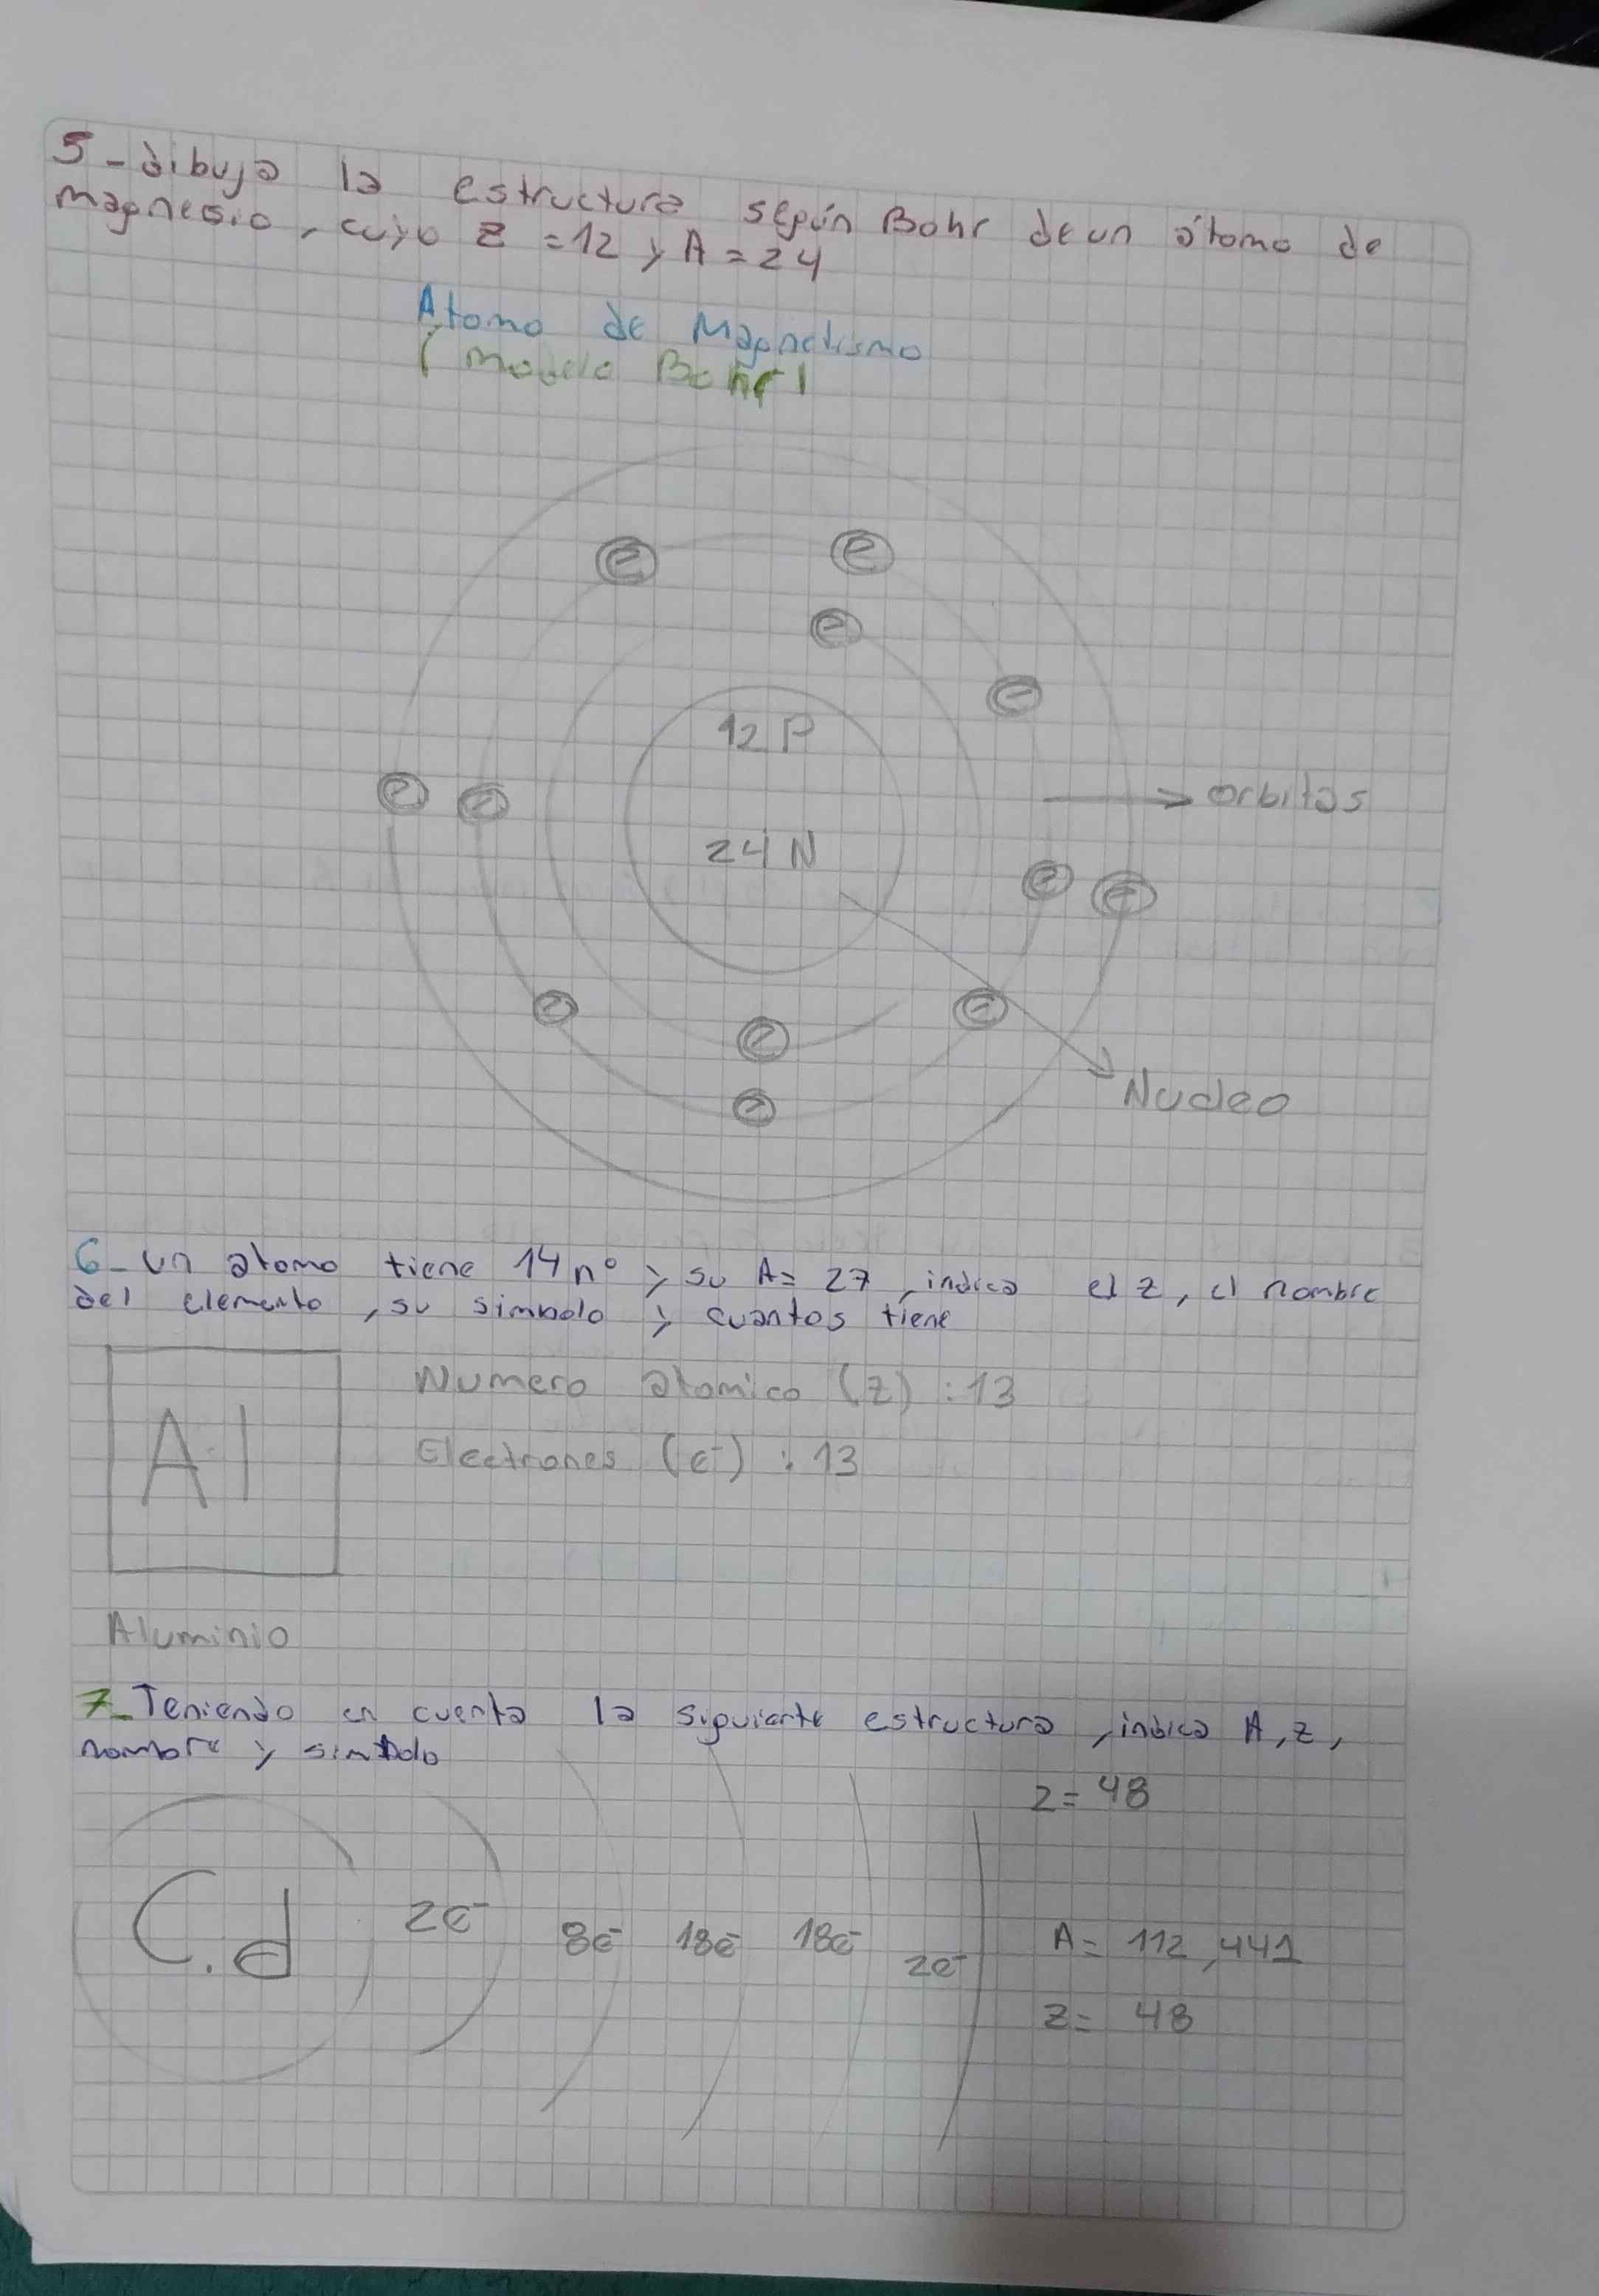 5-dibuja la estructura según Bohr de un átomo de
magnesio, cuyo Z =12 y A = 24
Atomo de Magnetismo
(modelo Bohr)
e e
e
e
12 P
e e → orbitas
24 N
e e
e e
e
e
Nucleo
6- un atomo tiene 14 n° y su A= 27, indica el z, el nombre
del elemento, su simbolo y cuantos tiene
Numero atomico (z) : 13
Al
Electrones (e-) : 13
Aluminio
7-Teniendo en cuenta la siguiente estructura, indica A, z,
nombre y simbolo
z= 48
C.d 2e- 8e- 18e- 18e- 2e- A= 112,441
z= 48